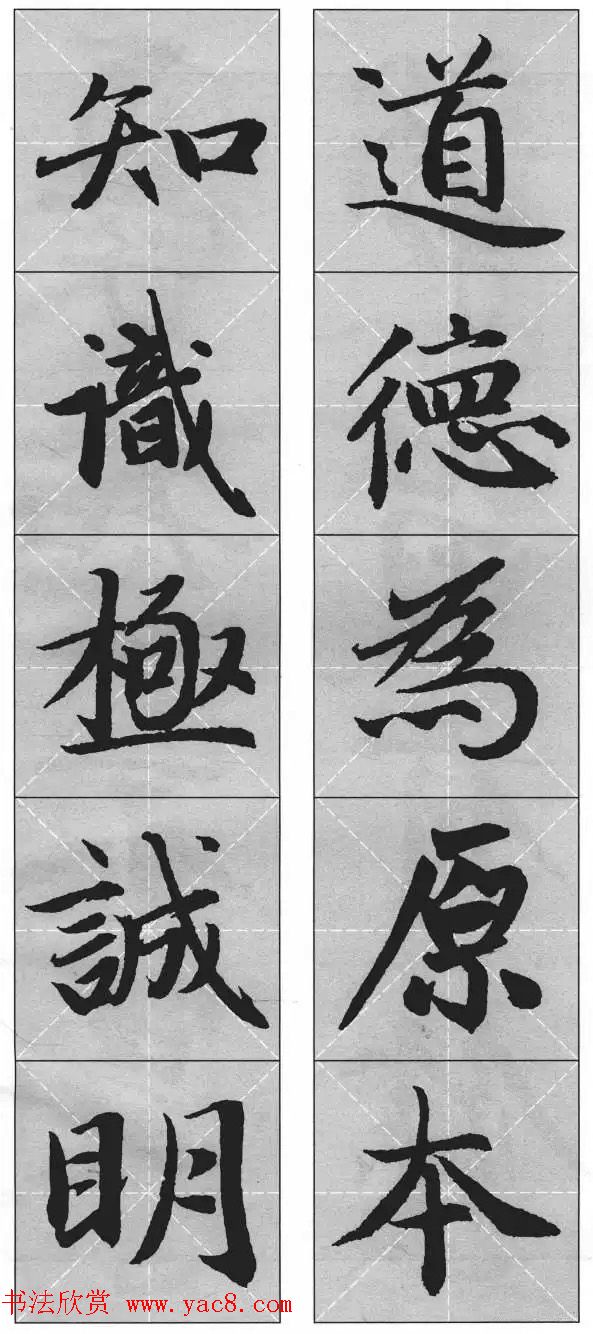 道德為原本
知識極誠明
书法欣赏 www.yac8.com